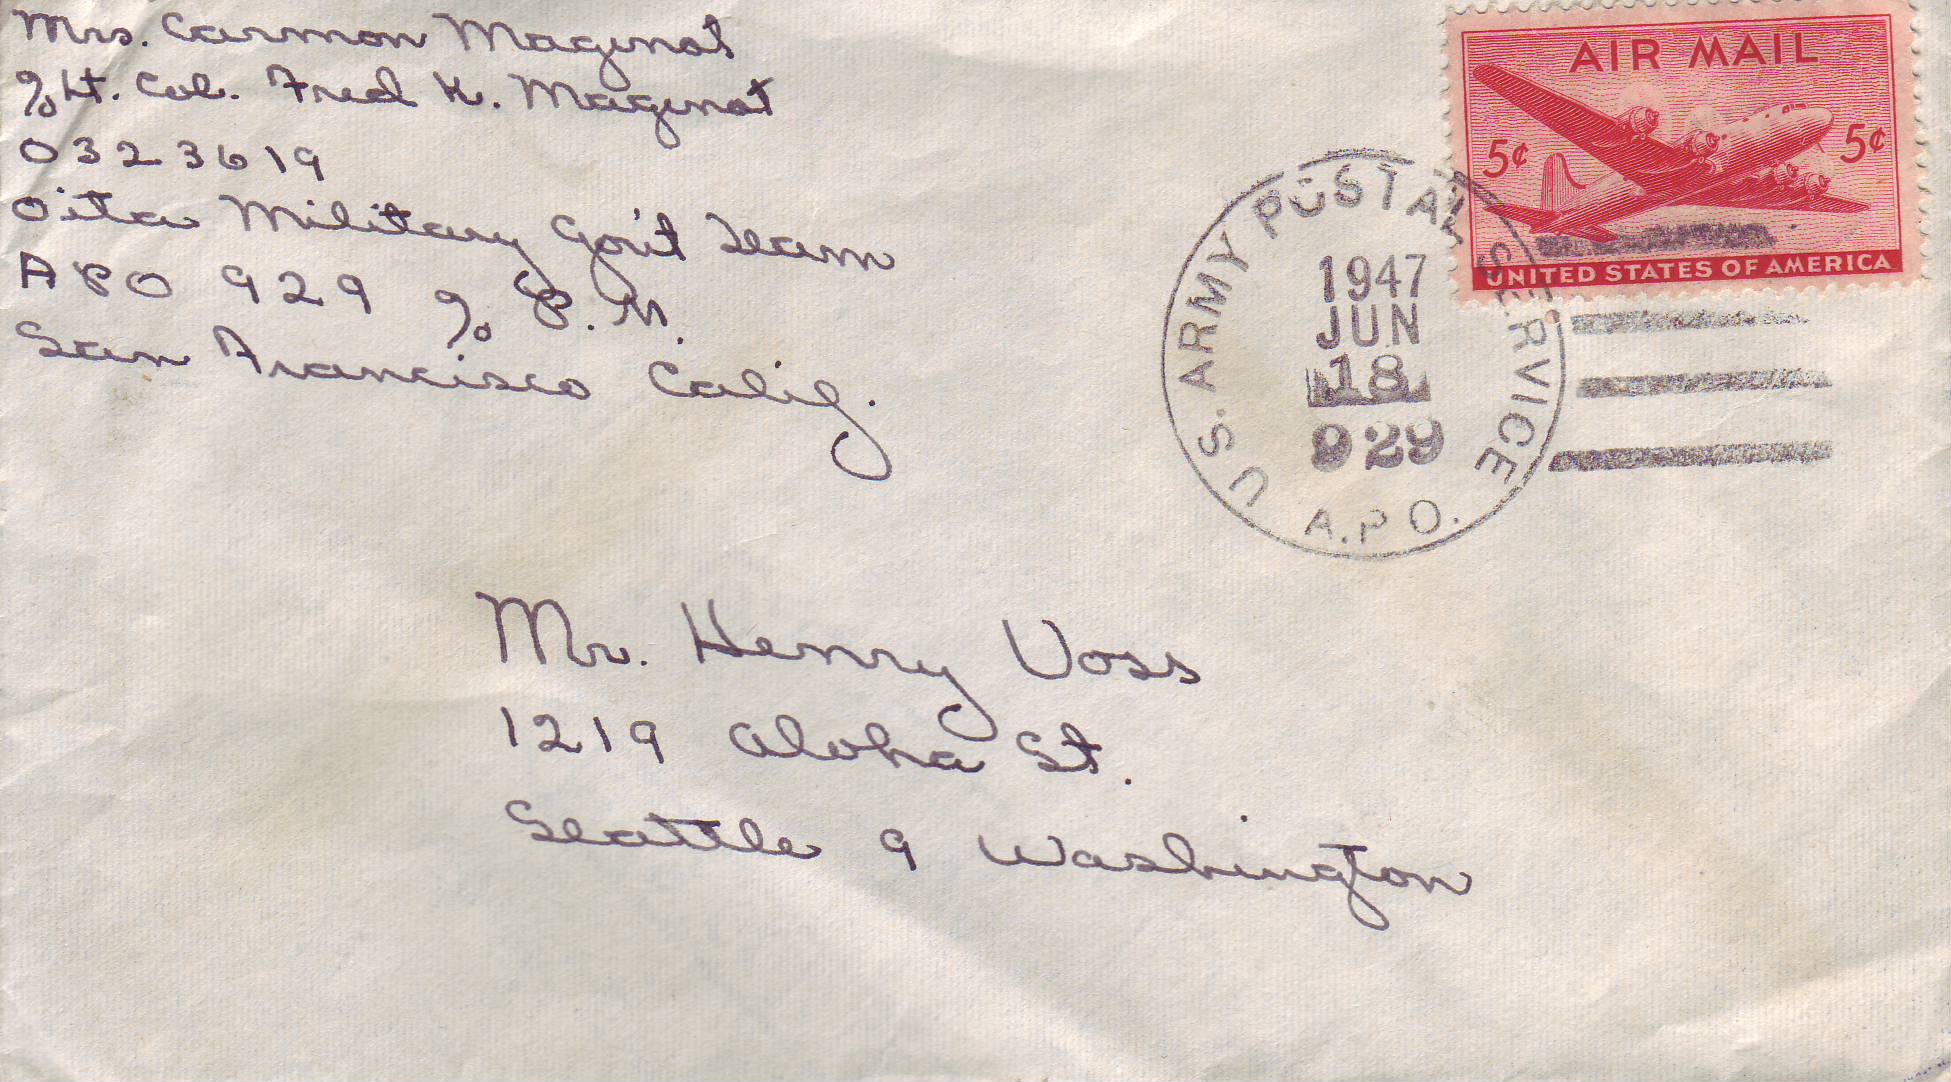 Mrs. Carmon Maginot
c/o Lt. Col. Fred K. Maginot
0323619
Oita Military Gov't Team
APO 929 c/o P.M.
San Francisco Calif.
AIR MAIL
5¢ 5¢
UNITED STATES OF AMERICA
U.S. ARMY POSTAL SERVICE
1947
JUN
18
929
A.P.O.
Mr. Henry Voss
1219 Aloha St.
Seattle 9 Washington